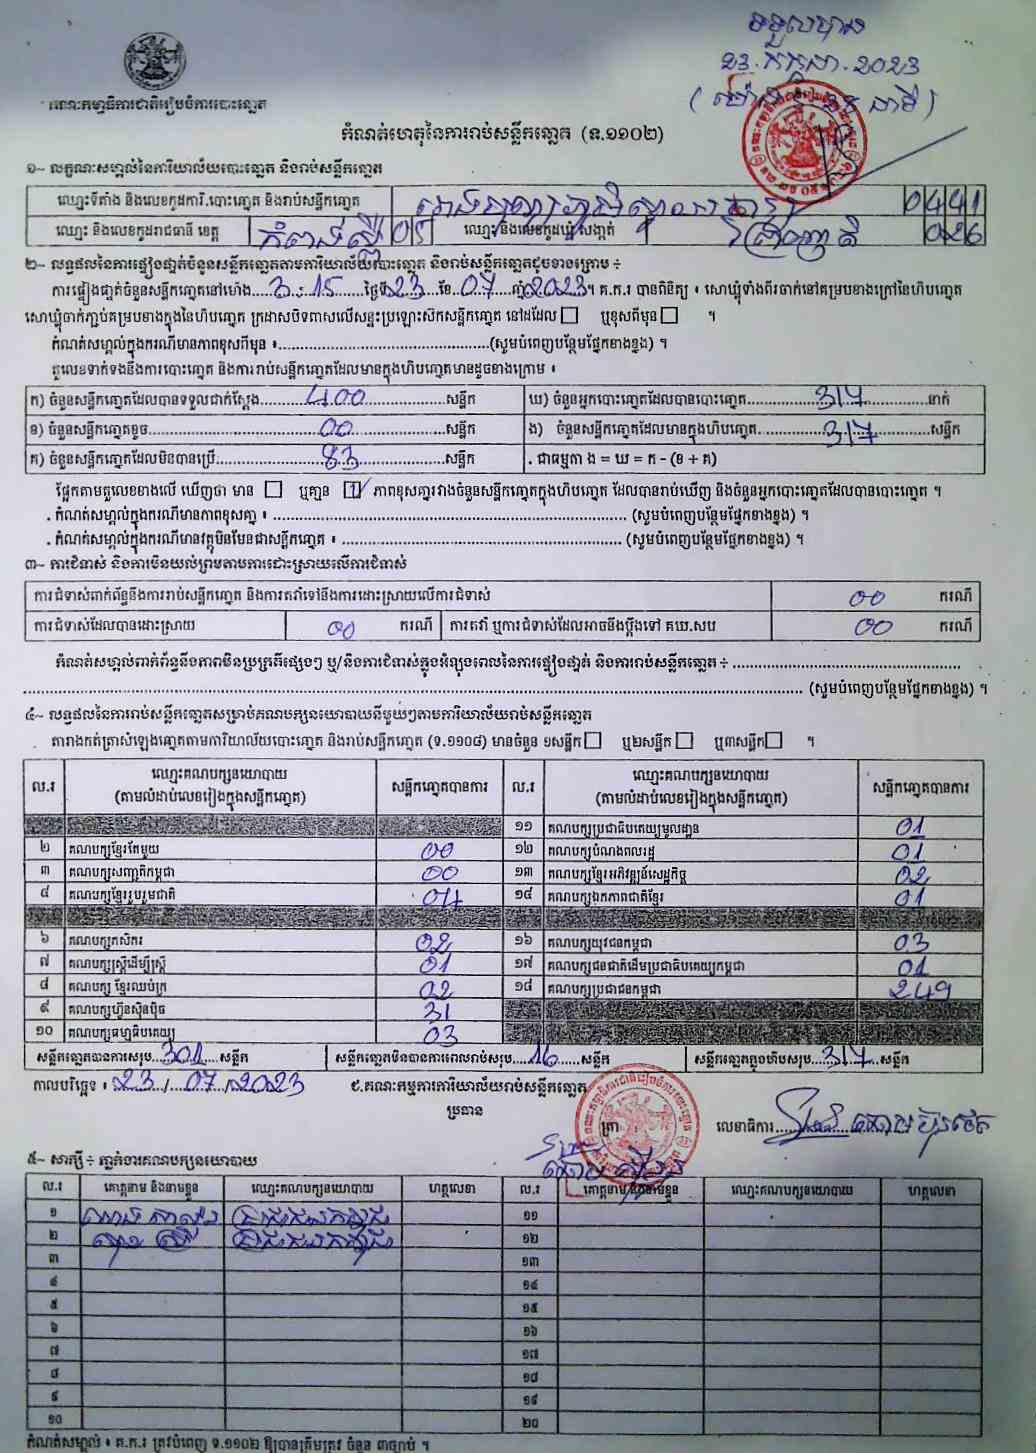 ទទួលបាន
23.កក្កដា.2023
គណៈកម្មាធិការជាតិរៀបចំការបោះឆ្នោត
កំណត់ហេតុនៃការរាប់សន្លឹកឆ្នោត (ឧ.១១០២)
១~ លក្ខណៈសម្គាល់នៃការិយាល័យបោះឆ្នោត និងរាប់សន្លឹកឆ្នោត
ឈ្មោះទីតាំង និងលេខកូដការិ.បោះឆ្នោត និងរាប់សន្លឹកឆ្នោត 0441
ឈ្មោះ និងលេខកូដរាជធានី ខេត្ត កំពង់ស្ពឺ 05 ឈ្មោះ និងលេខកូដឃុំ សង្កាត់ 026
២~ លទ្ធផលនៃការផ្ទៀងផ្ទាត់ចំនួនសន្លឹកឆ្នោតតាមការិយាល័យបោះឆ្នោត និងរាប់សន្លឹកឆ្នោតដូចខាងក្រោម ÷
ការផ្ទៀងផ្ទាត់ចំនួនសន្លឹកឆ្នោតនៅម៉ោង 3:15 ថ្ងៃទី 23 ខែ 07 ឆ្នាំ 2023។ គ.ក.រ បានពិនិត្យ ៖ សោឃ្មុំទាំងពីរចាក់នៅគម្របខាងក្រៅនៃហិបឆ្នោត
សោឃ្មុំចាក់ភ្ជាប់គម្របខាងក្នុងនៃហិបឆ្នោត ក្រដាសបិទពាសលើសន្ទះប្រឡោះស៊កសន្លឹកឆ្នោត នៅដដែល ☐ ឬខុសពីមុន ☐ ។
កំណត់សម្គាល់ក្នុងករណីមានភាពខុសពីមុន ៖ (សូមបំពេញបន្ថែមផ្នែកខាងខ្នង) ។
តួលេខទាក់ទងនឹងការបោះឆ្នោត និងការរាប់សន្លឹកឆ្នោតដែលមានក្នុងហិបឆ្នោតមានដូចខាងក្រោម ៖
ក) ចំនួនសន្លឹកឆ្នោតដែលបានទទួលជាក់ស្តែង 400 សន្លឹក ឃ) ចំនួនអ្នកបោះឆ្នោតដែលបានបោះឆ្នោត 317 នាក់
ខ) ចំនួនសន្លឹកឆ្នោតខូច 00 សន្លឹក ង) ចំនួនសន្លឹកឆ្នោតដែលមានក្នុងហិបឆ្នោត 317 សន្លឹក
គ) ចំនួនសន្លឹកឆ្នោតដែលមិនបានប្រើ 83 សន្លឹក . ជាធម្មតា ង = ឃ = ក - (ខ + គ)
ផ្អែកតាមតួលេខខាងលើ ឃើញថា មាន ☐ ឬគ្មាន ☑ ភាពខុសគ្នារវាងចំនួនសន្លឹកឆ្នោតក្នុងហិបឆ្នោត ដែលបានរាប់ឃើញ និងចំនួនអ្នកបោះឆ្នោតដែលបានបោះឆ្នោត ។
. កំណត់សម្គាល់ក្នុងករណីមានភាពខុសគ្នា ៖ (សូមបំពេញបន្ថែមផ្នែកខាងខ្នង) ។
. កំណត់សម្គាល់ក្នុងករណីមានវត្ថុមិនមែនជាសន្លឹកឆ្នោត ៖ (សូមបំពេញបន្ថែមផ្នែកខាងខ្នង) ។
៣~ ការជំទាស់ និងការមិនយល់ព្រមតាមការដោះស្រាយលើការជំទាស់
ការជំទាស់ពាក់ព័ន្ធនឹងការរាប់សន្លឹកឆ្នោត និងការតវ៉ាទៅនឹងការដោះស្រាយលើការជំទាស់ 00 ករណី
ការជំទាស់ដែលបានដោះស្រាយ 00 ករណី ការតវ៉ា ឬការជំទាស់ដែលអាចនឹងប្តឹងទៅ គឃ.សប 00 ករណី
កំណត់សម្គាល់ពាក់ព័ន្ធនឹងភាពមិនប្រក្រតីផ្សេងៗ ឬ/និងការជំទាស់ក្នុងអំឡុងពេលនៃការផ្ទៀងផ្ទាត់ និងការរាប់សន្លឹកឆ្នោត ÷
(សូមបំពេញបន្ថែមផ្នែកខាងខ្នង) ។
៤~ លទ្ធផលនៃការរាប់សន្លឹកឆ្នោតសម្រាប់គណបក្សនយោបាយនីមួយៗតាមការិយាល័យរាប់សន្លឹកឆ្នោត
តារាងកត់ត្រាសំឡេងឆ្នោតតាមការិយាល័យបោះឆ្នោត និងរាប់សន្លឹកឆ្នោត (ទ.១១០៨) មានចំនួន ១សន្លឹក ☐ ឬ២សន្លឹក ☐ ឬ៣សន្លឹក ☐ ។
ល.រ ឈ្មោះគណបក្សនយោបាយ (តាមលំដាប់លេខរៀងក្នុងសន្លឹកឆ្នោត) សន្លឹកឆ្នោតបានការ ល.រ ឈ្មោះគណបក្សនយោបាយ (តាមលំដាប់លេខរៀងក្នុងសន្លឹកឆ្នោត) សន្លឹកឆ្នោតបានការ
១១ គណបក្សប្រជាធិបតេយ្យមូលដ្ឋាន 01
២ គណបក្សខ្មែរតែមួយ 00 ១២ គណបក្សបំណងពលរដ្ឋ 01
៣ គណបក្សសញ្ជាតិកម្ពុជា 00 ១៣ គណបក្សខ្មែរអភិវឌ្ឍន៍សេដ្ឋកិច្ច 02
៤ គណបក្សខ្មែររួបរួមជាតិ 04 ១៤ គណបក្សឯកភាពជាតិខ្មែរ 01
៦ គណបក្សកសិករ 02 ១៦ គណបក្សយុវជនកម្ពុជា 03
៧ គណបក្សស្ត្រីដើម្បីស្ត្រី 01 ១៧ គណបក្សជនជាតិដើមប្រជាធិបតេយ្យកម្ពុជា 01
៨ គណបក្ស ខ្មែរឈប់ក្រ 02 ១៨ គណបក្សប្រជាជនកម្ពុជា 249
៩ គណបក្សហ៊្វុនស៊ិនប៉ិច 31
១០ គណបក្សធម្មាធិបតេយ្យ 03
សន្លឹកឆ្នោតបានការសរុប 301 សន្លឹក សន្លឹកឆ្នោតមិនបានការពេលរាប់សរុប 16 សន្លឹក សន្លឹកឆ្នោតក្នុងហិបសរុប 317 សន្លឹក
កាលបរិច្ឆេទ ៖ 23/07/2023 ជ.គណៈកម្មការការិយាល័យរាប់សន្លឹកឆ្នោត
ប្រធាន
ត្រា លេខាធិការ
៥~ សាក្សី ÷ ភ្នាក់ងារគណបក្សនយោបាយ
ល.រ គោត្តនាម និងនាមខ្លួន ឈ្មោះគណបក្សនយោបាយ ហត្ថលេខា ល.រ គោត្តនាម និងនាមខ្លួន ឈ្មោះគណបក្សនយោបាយ ហត្ថលេខា
១ ប្រជាជនកម្ពុជា ១១
២ ប្រជាជនកម្ពុជា ១២
៣ ១៣
៤ ១៤
៥ ១៥
៦ ១៦
៧ ១៧
៨ ១៨
៩ ១៩
១០ ២០
កំណត់សម្គាល់ ៖ គ.ក.រ ត្រូវបំពេញ ទ.១១០២ ឱ្យបានត្រឹមត្រូវ ចំនួន ៣ច្បាប់ ។